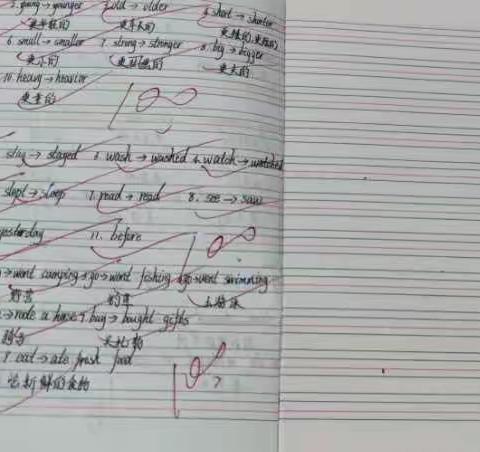 young → younger old → older 4. short → shorter
更年轻的 更年长的
6. small → smaller 7. strong → stronger 8. big → bigger
更小的 更强壮的 更大的
10. heavy → heavier
更重的
100
stay → stayed 3. wash → washed 4. watch → watched
slept → sleep 7. read → read 8. see → saw
yesterday 11. before
100
→ went camping → go → went fishing → went swimming
野营 钓鱼 去游泳
→ rode a horse 7. buy → bought gifts
骑马 买礼物
9. eat → ate fresh food
吃新鲜的食物